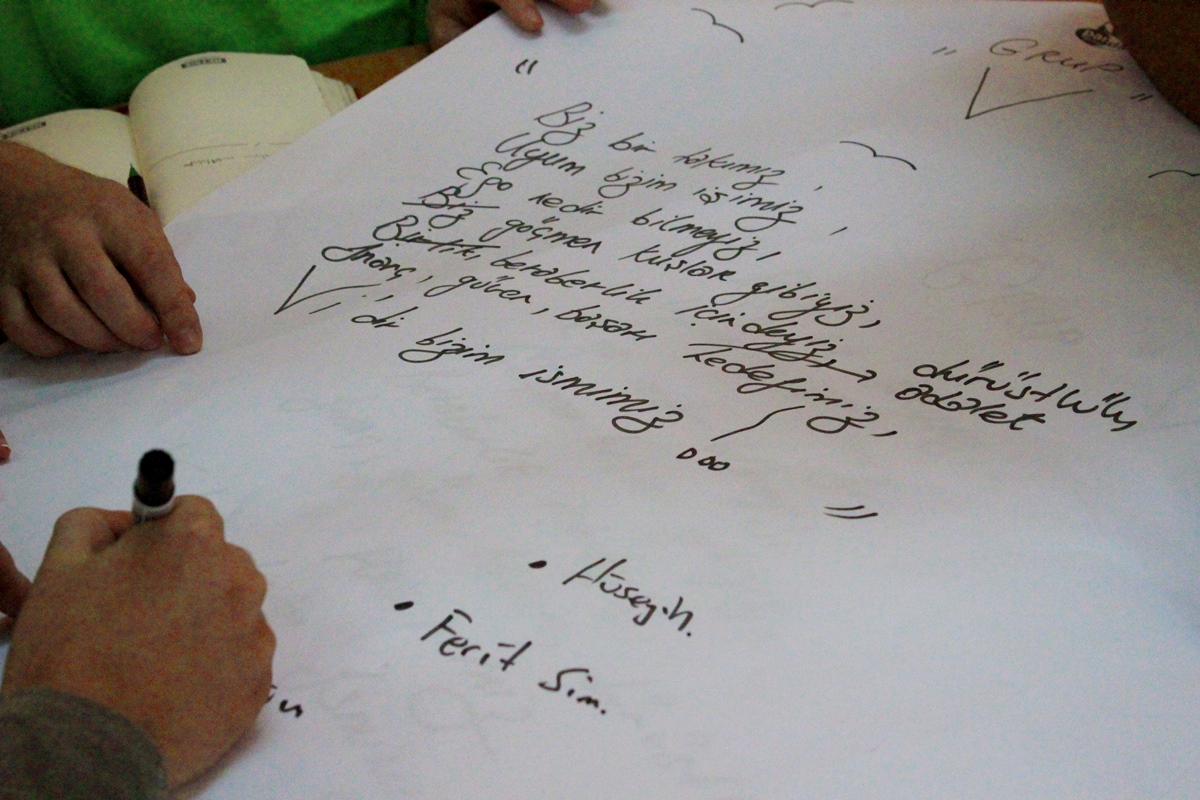 " GRUP "
V
"
Biz bir takımız,
Uyum bizim işimiz,
Ego nedir bilmeyiz,
Biz göçmen kuşlar gibiyiz,
Birlik, beraberlik içindeyiz → dürüstlük
adalet
İnanç, güven, başarı hedefimiz,
V 'dir bizim ismimiz ...
"
• Hüseyin.
• Ferit Sim.